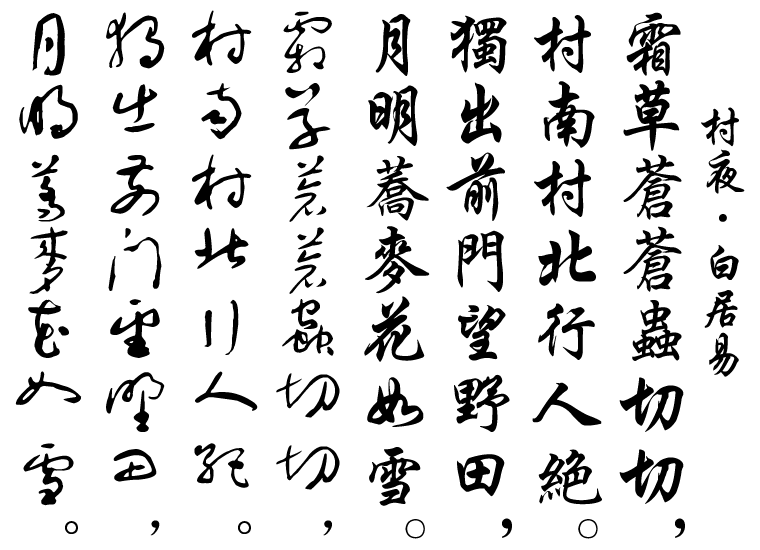 村夜·白居易
霜草蒼蒼蟲切切，
村南村北行人絕。
獨出前門望野田，
月明蕎麥花如雪。
霜草蒼蒼蟲切切，
村南村北行人絕。
獨出前門望野田，
月明蕎麥花如雪。